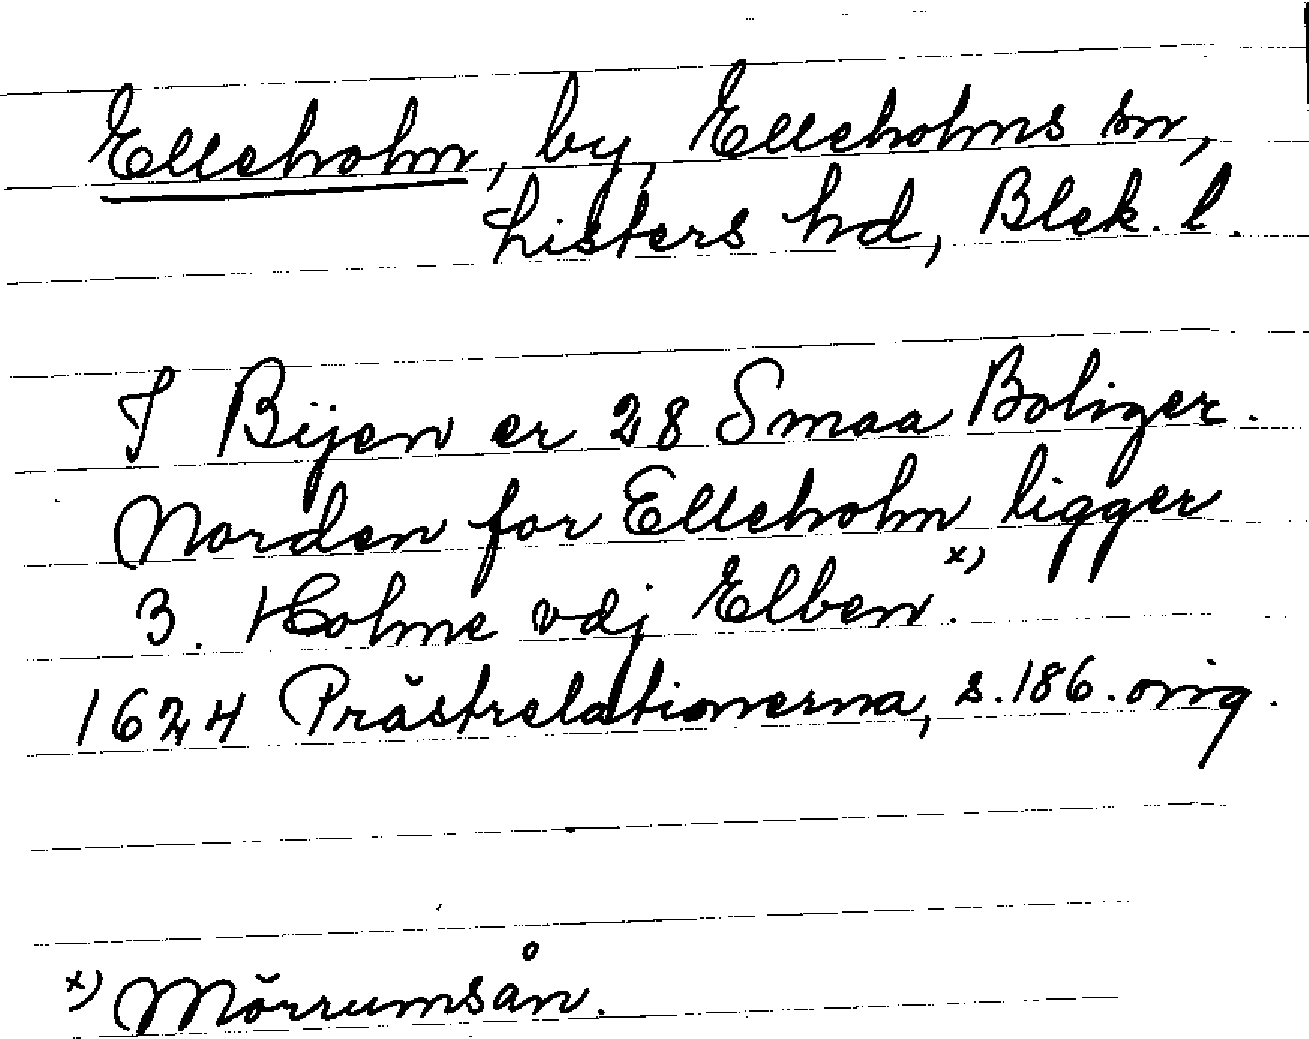 Elleholm, by, Elleholms sn,
Listers hd, Blek. l.
I Bÿen er 28 Smaa Boliger.
Norden for Elleholm ligger
3. Holme vdj Elben.x)
1624 Prästrelationerna, s. 186. orig.
x) Mörrumsån.